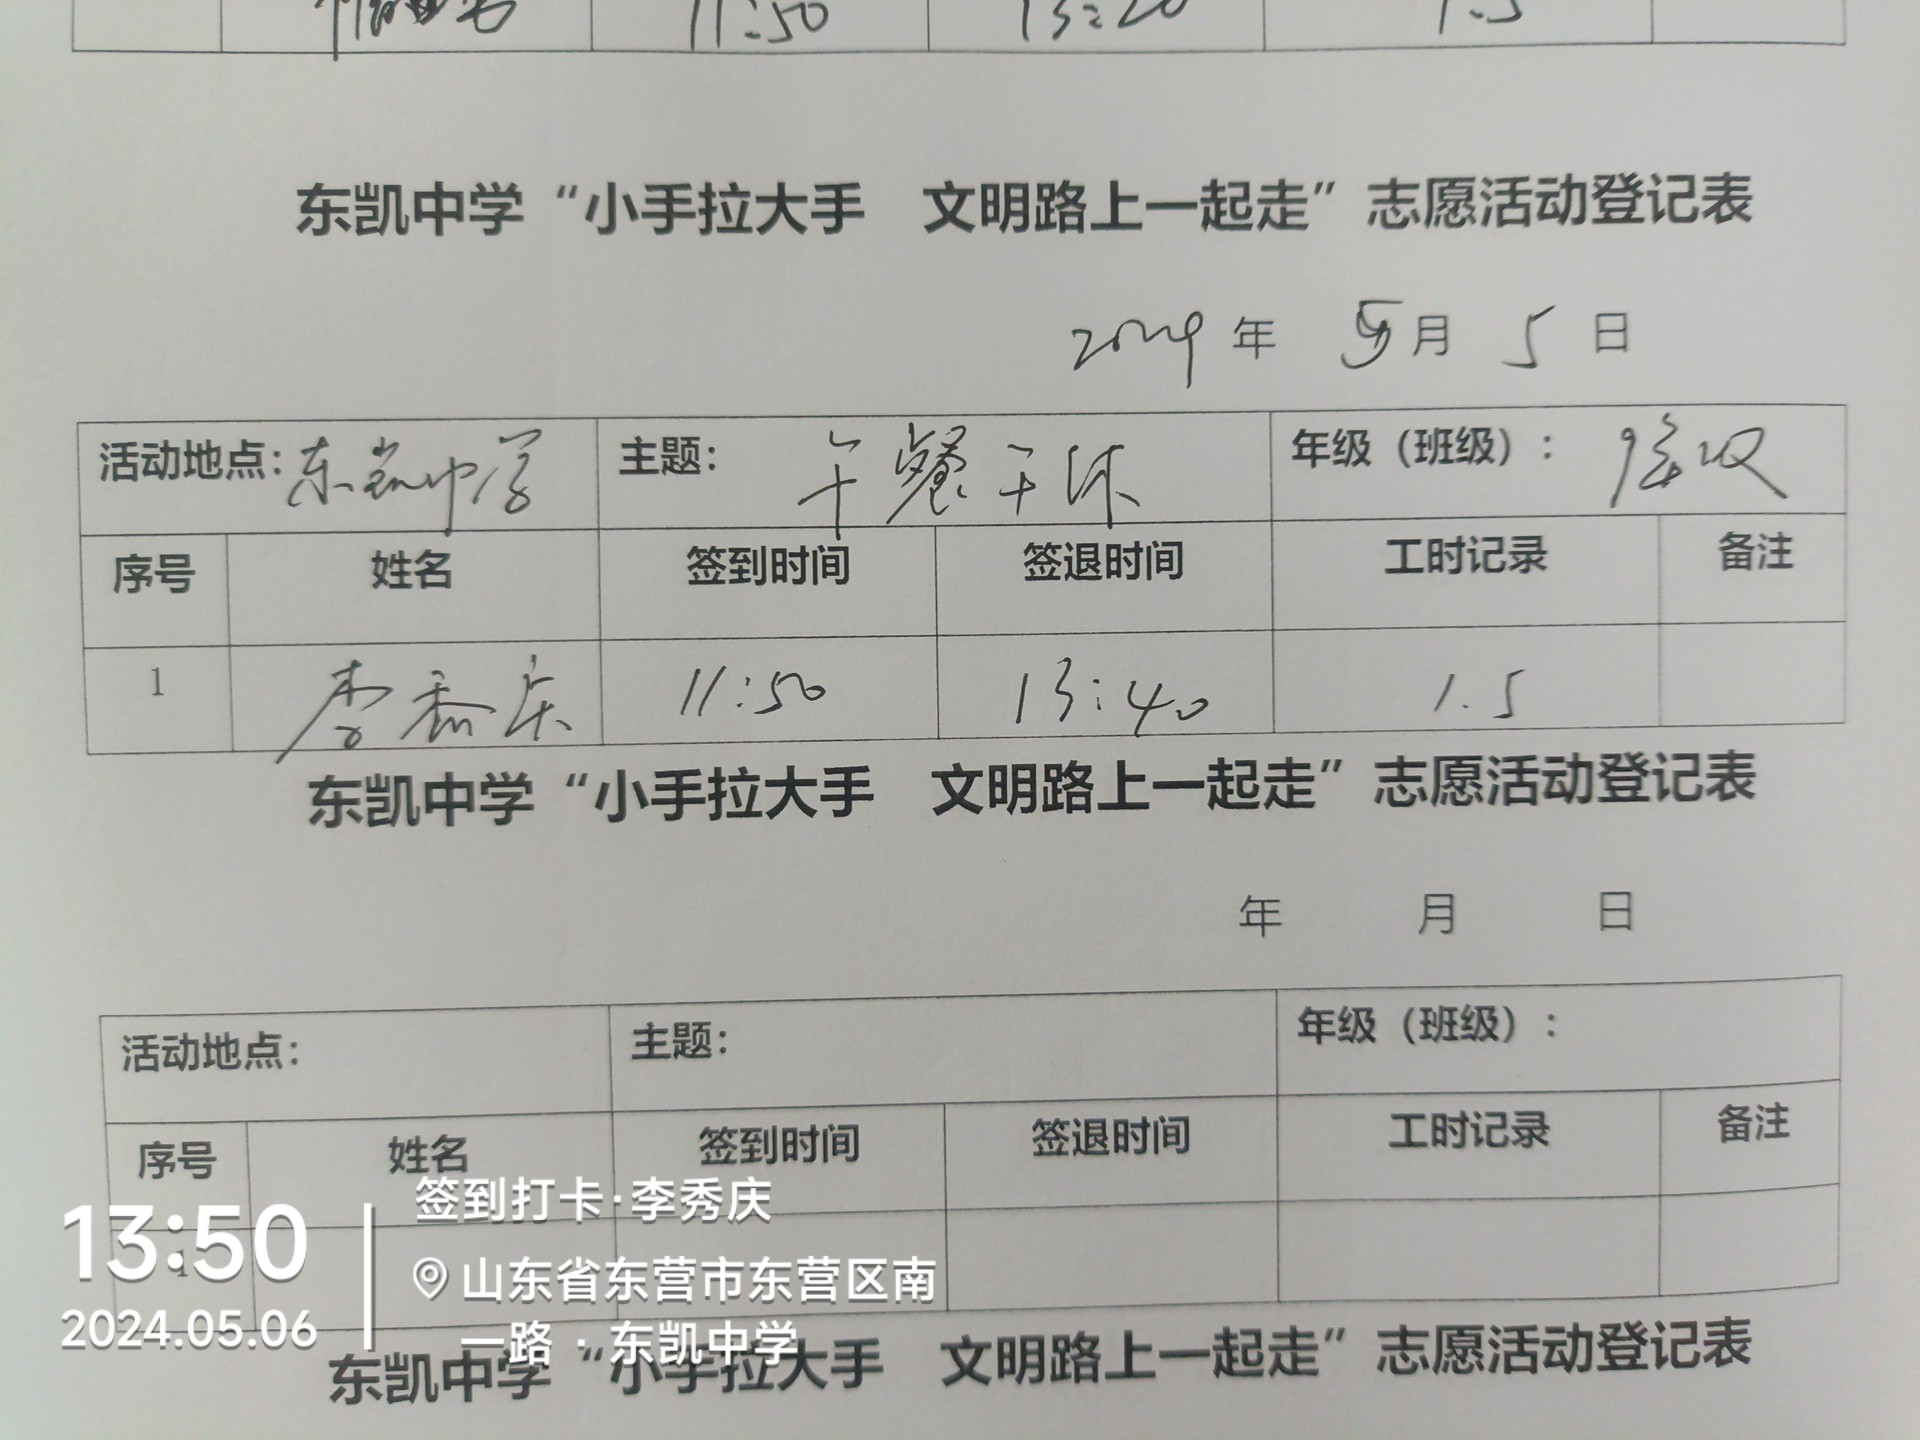 11:50 13:20 1.5
东凯中学“小手拉大手 文明路上一起走”志愿活动登记表
2024年 5月 5日
活动地点:东凯中学 主题: 午餐午休 年级（班级）:
序号 姓名 签到时间 签退时间 工时记录 备注
1 李秀庆 11:50 13:40 1.5
东凯中学“小手拉大手 文明路上一起走”志愿活动登记表
年 月 日
活动地点: 主题: 年级（班级）:
序号 姓名 签到时间 签退时间 工时记录 备注
1
签到打卡·李秀庆
13:50
2024.05.06
山东省东营市东营区南
一路·东凯中学
东凯中学“小手拉大手 文明路上一起走”志愿活动登记表